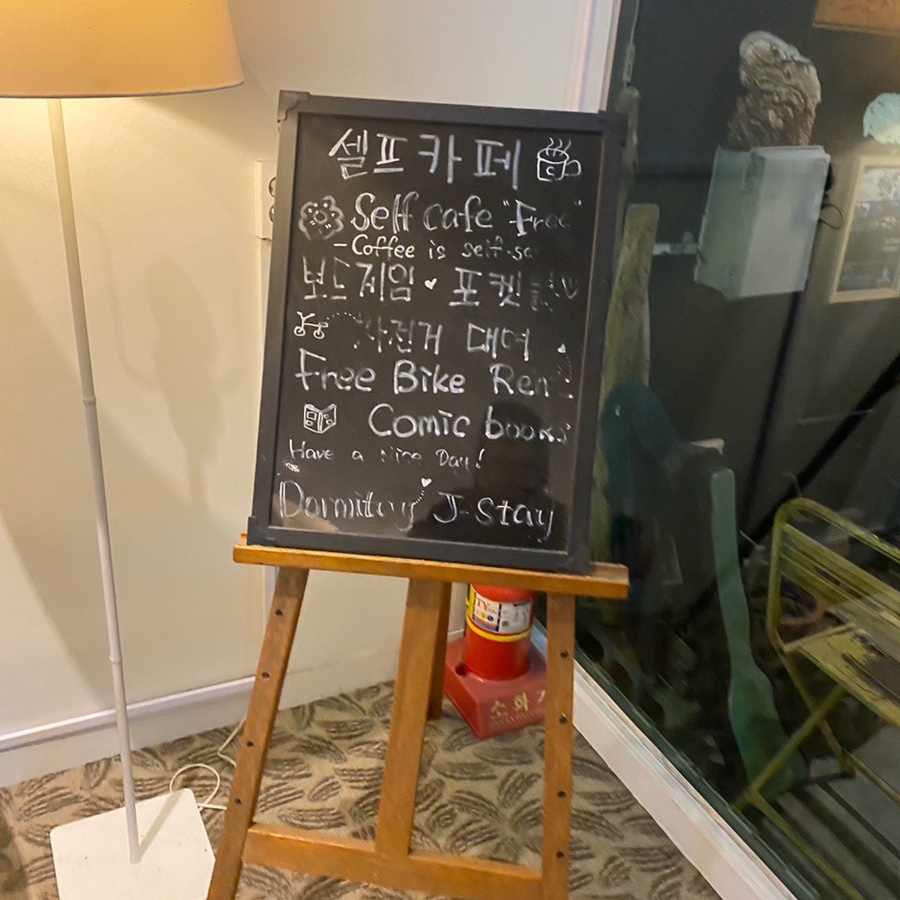 셀프 카페
Self cafe "Free"
- Coffee is self-se
보드게임 ♥ 포켓볼
자전거 대여
Free Bike Ren
Comic books
Have a Nice Day!
Dormitory J-Stay
소화기